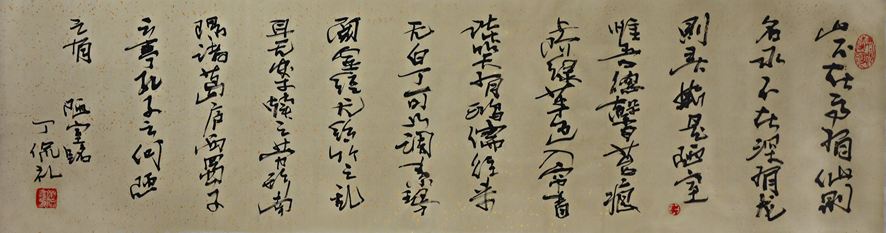 山不在高有仙則
名水不在深有龙
則灵斯是陋室
惟吾德馨苔痕
上阶绿草色入帘青
谈笑有鸿儒往来
无白丁可以调素琴
阅金经无丝竹之乱
耳无案牍之劳形南
阳诸葛庐西蜀子
云亭孔子云何陋
之有
陋室铭
丁侃礼